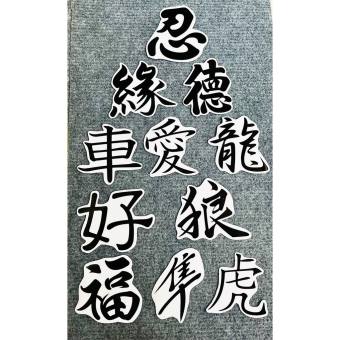 忍
緣 德
車 愛 龍
好 狼
福 隼 虎